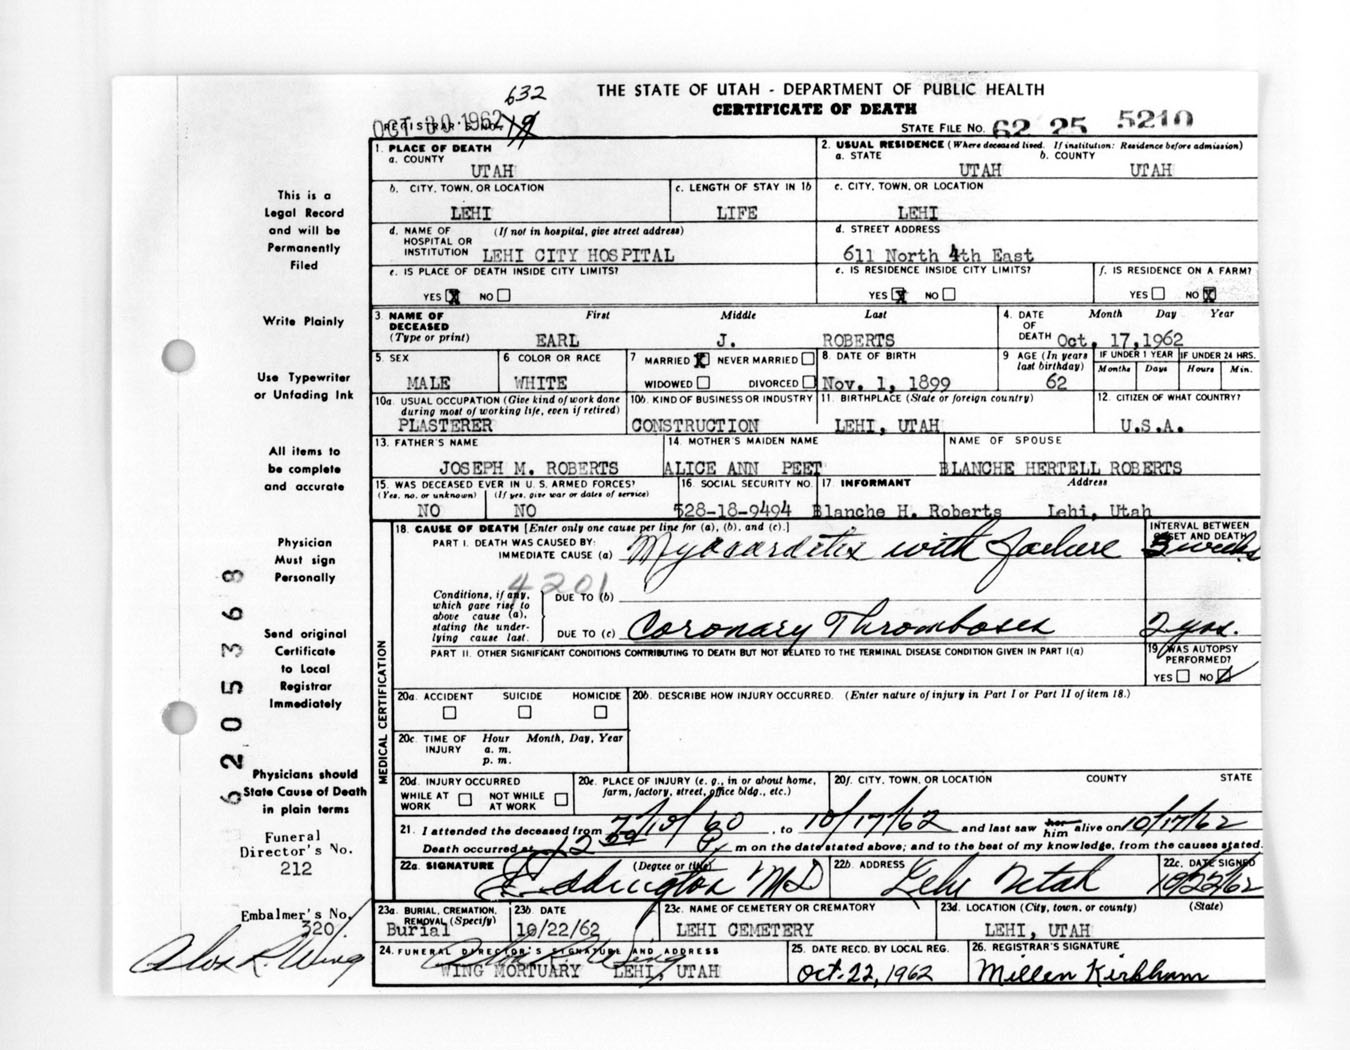 632
THE STATE OF UTAH - DEPARTMENT OF PUBLIC HEALTH
CERTIFICATE OF DEATH
OCT 30 1962
REGISTRAR'S NO. 19
STATE FILE NO. 62 25 5210
1. PLACE OF DEATH
a. COUNTY
UTAH
2. USUAL RESIDENCE (Where deceased lived. If institution: Residence before admission)
a. STATE b. COUNTY
UTAH UTAH
b. CITY, TOWN, OR LOCATION
LEHI
c. LENGTH OF STAY IN 1b
LIFE
c. CITY, TOWN, OR LOCATION
LEHI
d. NAME OF (If not in hospital, give street address)
HOSPITAL OR
INSTITUTION LEHI CITY HOSPITAL
d. STREET ADDRESS
611 North 4th East
e. IS PLACE OF DEATH INSIDE CITY LIMITS?
YES X NO
e. IS RESIDENCE INSIDE CITY LIMITS?
YES X NO
f. IS RESIDENCE ON A FARM?
YES NO X
3. NAME OF First Middle Last
DECEASED
(Type or print) EARL J. ROBERTS
4. DATE Month Day Year
OF
DEATH Oct. 17, 1962
5. SEX
MALE
6. COLOR OR RACE
WHITE
7. MARRIED X NEVER MARRIED
WIDOWED DIVORCED
8. DATE OF BIRTH
Nov. 1, 1899
9. AGE (In years
last birthday)
62
IF UNDER 1 YEAR
Months Days
IF UNDER 24 HRS.
Hours Min.
10a. USUAL OCCUPATION (Give kind of work done
during most of working life, even if retired)
PLASTERER
10b. KIND OF BUSINESS OR INDUSTRY
CONSTRUCTION
11. BIRTHPLACE (State or foreign country)
LEHI, UTAH
12. CITIZEN OF WHAT COUNTRY?
U.S.A.
13. FATHER'S NAME
JOSEPH M. ROBERTS
14. MOTHER'S MAIDEN NAME
ALICE ANN PEET
NAME OF SPOUSE
BLANCHE HERTELL ROBERTS
15. WAS DECEASED EVER IN U. S. ARMED FORCES?
(Yes, no, or unknown) (If yes, give war or dates of service)
NO NO
16. SOCIAL SECURITY NO.
528-18-9494
17. INFORMANT Address
Blanche H. Roberts Lehi, Utah
MEDICAL CERTIFICATION
18. CAUSE OF DEATH [Enter only one cause per line for (a), (b), and (c).]
INTERVAL BETWEEN
ONSET AND DEATH
PART I. DEATH WAS CAUSED BY:
IMMEDIATE CAUSE (a) Myocarditis with failure 3 weeks
4201
Conditions, if any,
which gave rise to
above cause (a),
stating the under-
lying cause last.
DUE TO (b)
DUE TO (c) Coronary Thromboses 2 yrs.
PART II. OTHER SIGNIFICANT CONDITIONS CONTRIBUTING TO DEATH BUT NOT RELATED TO THE TERMINAL DISEASE CONDITION GIVEN IN PART I(a)
19. WAS AUTOPSY
PERFORMED?
YES NO
20a. ACCIDENT SUICIDE HOMICIDE
20b. DESCRIBE HOW INJURY OCCURRED. (Enter nature of injury in Part I or Part II of item 18.)
20c. TIME OF Hour Month, Day, Year
INJURY a. m.
p. m.
20d. INJURY OCCURRED
WHILE AT NOT WHILE
WORK AT WORK
20e. PLACE OF INJURY (e. g., in or about home,
farm, factory, street, office bldg., etc.)
20f. CITY, TOWN, OR LOCATION COUNTY STATE
21. I attended the deceased from 7/10/60, to 10/17/62 and last saw her him alive on 10/17/62
Death occurred at 12 P. m on the date stated above; and to the best of my knowledge, from the causes stated.
22a. SIGNATURE (Degree or title)
Eddington MD
22b. ADDRESS
Lehi Utah
22c. DATE SIGNED
10/22/62
23a. BURIAL, CREMATION,
REMOVAL (Specify)
Burial
23b. DATE
10/22/62
23c. NAME OF CEMETERY OR CREMATORY
LEHI CEMETERY
23d. LOCATION (City, town, or county) (State)
LEHI, UTAH
24. FUNERAL DIRECTOR'S SIGNATURE AND ADDRESS
WING MORTUARY LEHI, UTAH
25. DATE RECD. BY LOCAL REG.
Oct. 22, 1962
26. REGISTRAR'S SIGNATURE
Millen Kirkham
This is a
Legal Record
and will be
Permanently
Filed
Write Plainly
Use Typewriter
or Unfading Ink
All items to
be complete
and accurate
Physician
Must sign
Personally
Send original
Certificate
to Local
Registrar
Immediately
Physicians should
State Cause of Death
in plain terms
Funeral
Director's No.
212
Embalmer's No.
320
Alva R. Wing
6205368